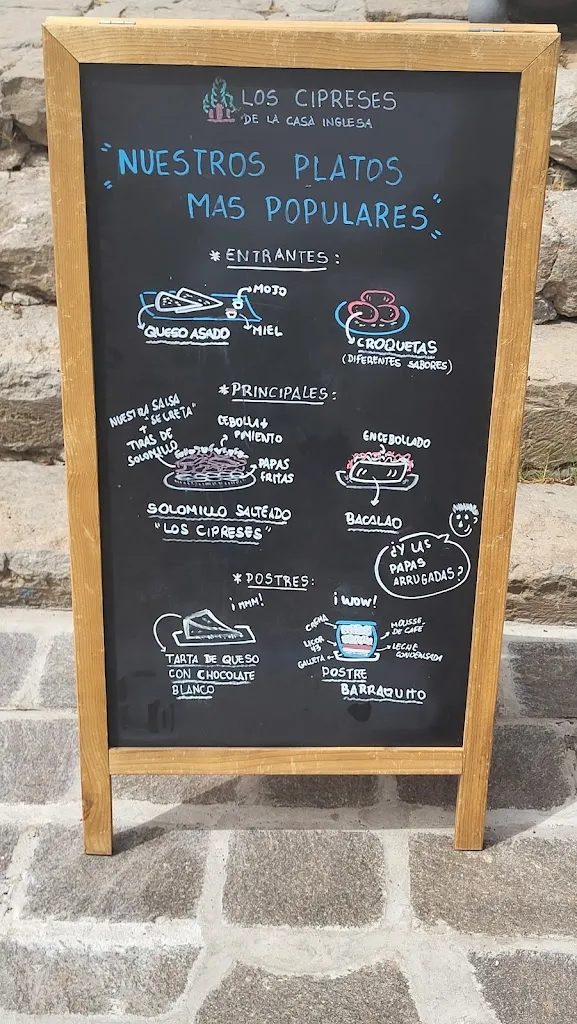 LOS CIPRESES
DE LA CASA INGLESA
"NUESTROS PLATOS
MAS POPULARES"
* ENTRANTES:
MOJO
MIEL
QUESO ASADO
CROQUETAS
(DIFERENTES SABORES)
* PRINCIPALES:
NUESTRA SALSA
"SECRETA"
+
TIRAS DE
SOLOMILLO
CEBOLLA +
PIMIENTO
PAPAS
FRITAS
SOLOMILLO SALTEADO
"LOS CIPRESES"
ENCEBOLLADO
BACALAO
¿Y LAS
PAPAS
ARRUGADAS?
* POSTRES:
¡MMM!
TARTA DE QUESO
CON CHOCOLATE
BLANCO
¡WOW!
CREMA
LICOR
43
GALLETA
MOUSSE
DE CAFE
LECHE
CONDENSADA
POSTRE
BARRAQUITO